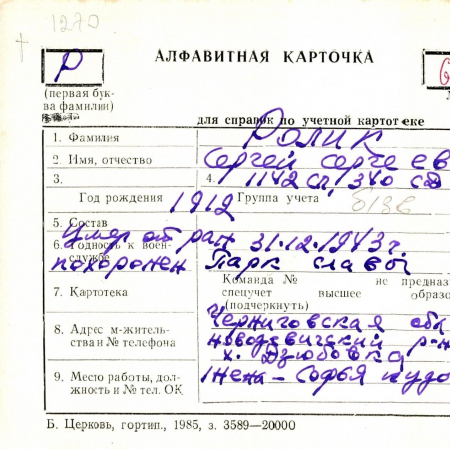 1270
Р
АЛФАВИТНАЯ КАРТОЧКА
(первая бук-
ва фамилии)
для справок по учетной картотеке
1. Фамилия Ролик
2. Имя, отчество Сергей Сергеев
3. 4. 1142 сп, 340 сд
Год рождения 1912 Группа учета
5. Состав
умер от ран 31.12.1943г.
6. Годность к воен-
службе
похоронен Парк славы
Команда № не предназ
7. Картотека спецучет высшее образо
(подчеркнуть)
Черниговская обл
8. Адрес м-житель-
ства и № телефона
новодевичский р-н
х. Дзюбовка
9. Место работы, дол-
жность и № тел. ОК
жена - Софья
Б. Церковь, гортип., 1985, з. 3589—20000